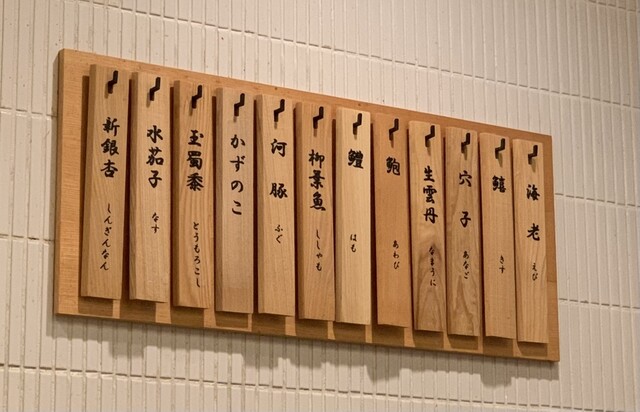 海老 えび
鱚 きす
穴子 あなご
生雲丹 なまうに
鮑 あわび
鱧 はも
柳葉魚 ししゃも
河豚 ふぐ
かずのこ
玉蜀黍 とうもろこし
水茄子 なす
新銀杏 しんぎんなん